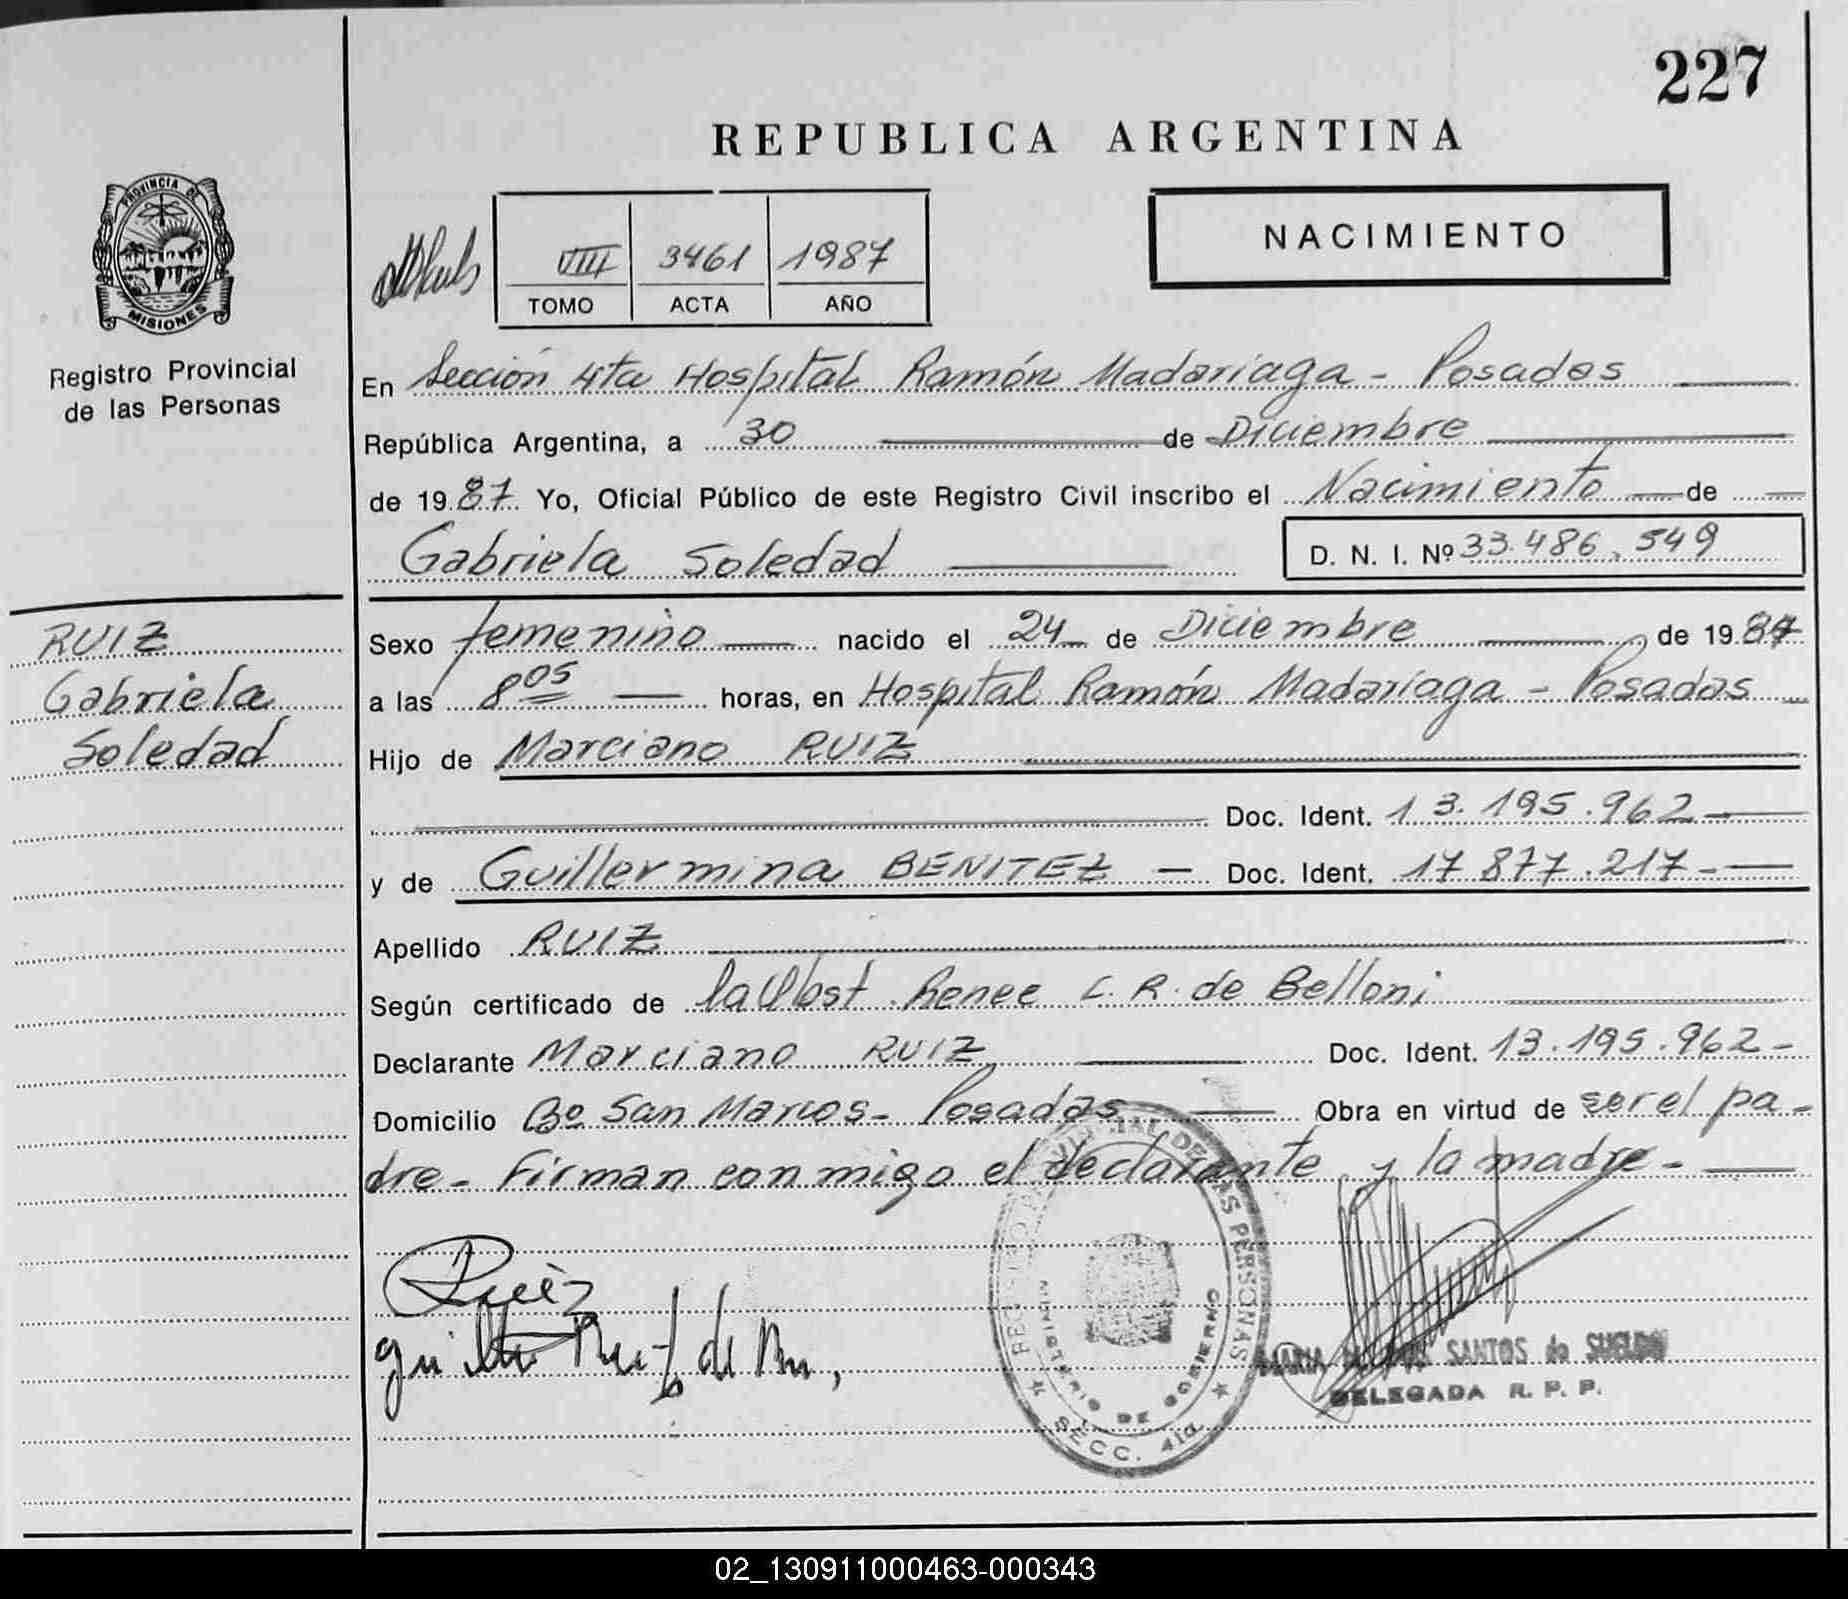 227
REPUBLICA ARGENTINA
PROVINCIA DE
MISIONES
Registro Provincial
de las Personas
VIII 3461 1987
TOMO ACTA AÑO
NACIMIENTO
En Sección 4ta Hospital Ramón Madariaga - Posadas
República Argentina, a 30 de Diciembre
de 1987. Yo, Oficial Público de este Registro Civil inscribo el Nacimiento de
Gabriela Soledad D. N. I. Nº 33.486.549
RUIZ
Gabriela
Soledad
Sexo femenino nacido el 24 de Diciembre de 1987
a las 8 05 horas, en Hospital Ramón Madariaga - Posadas
Hijo de Marciano RUIZ
Doc. Ident. 13.195.962
y de Guillermina BENITEZ Doc. Ident. 17.877.217
Apellido RUIZ
Según certificado de la Obst. Renee C. R. de Belloni
Declarante Marciano RUIZ Doc. Ident. 13.195.962
Domicilio Bº San Marcos - Posadas Obra en virtud de ser el pa-
dre - Firman conmigo el declarante y la madre -
Ruiz
DE LAS PERSONAS
MINISTERIO DE GOBIERNO
SECC. 4ta
MARIA SANTOS de SUELDO
DELEGADA R. P. P.
02_130911000463-000343